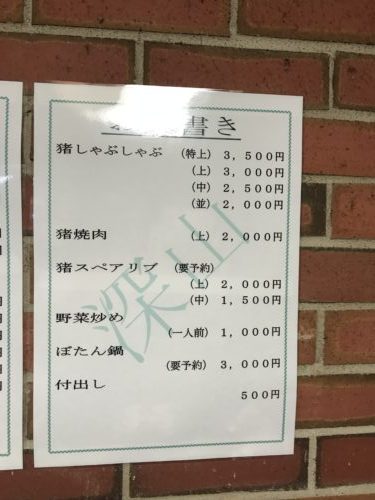 書き
猪しゃぶしゃぶ (特上) 3,500円
(上) 3,000円
(中) 2,500円
(並) 2,000円
猪焼肉 (上) 2,000円
猪スペアリブ (要予約)
(上) 2,000円
(中) 1,500円
野菜炒め
(一人前) 1,000円
ぼたん鍋
(要予約) 3,000円
付出し
500円
深山